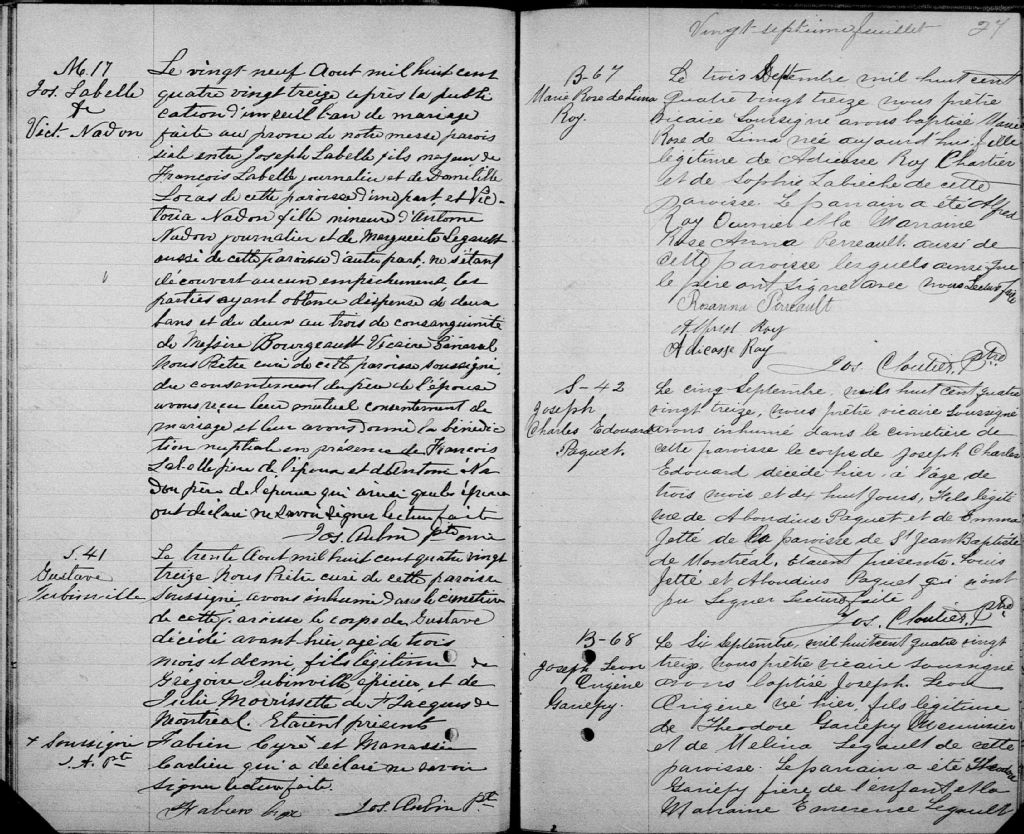 M. 17
Jos. Labelle
&
Vict. Nadon
Le vingt neuf Aout mil huit cent
quatre vingt treize après la publi
cation d'un seul ban de mariage
faite au prone de notre messe parois
siale entre Joseph Labelle fils majeur de
François Labelle journalier et de Domitille
Locas de cette paroisse d'une part et Vic-
toria Nadon fille mineure d'Antoine
Nadon journalier et de Marguerite Legault
aussi de cette paroisse d'autre part; ne s'étant
découvert aucun empêchement, les
parties ayant obtenu dispense de deux
bans et du deux au trois de consanguinité
de Messire Bourgeault Vicaire Général
Nous Prêtre curé de cette paroisse soussigné,
du consentement du père de l'épouse
avons reçu leur mutuel consentement de
mariage et leur avons donné la bénédic
tion nuptiale en présence de François
Labelle père de l'époux et d'Antoine Na
don père de l'épouse qui ainsi que les époux
ont déclaré ne savoir signer lecture faite
Jos. Aubin Ptre
S. 41
Gustave
Tubinville
Le trente Aout mil huit cent quatre vingt
treize Nous Prêtre curé de cette paroisse
soussigné, avons inhumé dans le cimetière
de cette paroisse le corps de Gustave
décédé avant hier agé de trois
mois et demi, fils légitime de
Grégoire Tubinville épicier, et de
Julie Morrissette de St Jacques de
Montréal. Etaient présents
Fabien Cyre x et Manassé
Cadieu qui a déclaré ne savoir
signer lecture faite.
x Soussigné
J. A. Ptre
Fabien Cyre Jos. Aubin Ptre
Vingt septieme feuillet 27
B-67
Marie Rose de Lima
Roy.
Le trois Septembre mil huit cent
Quatre vingt treize nous prêtre
vicaire soussigné avons baptisé Marie
Rose de Lima née aujourd'hui, fille
légitime de Adicasse Roy Chartier
et de Sophie Labrèche de cette
paroisse. Le parrain a été Alfred
Roy Ouvrier et la Marraine
Rose Anna Perreault aussi de
cette paroisse lesquels ainsi que
le père ont signé avec nous Lecture faite
Rosanna Perreault
Alfred Roy
Adicasse Roy
Jos. Cloutier, Ptre
S-42
Joseph
Charles Edouard
Paquet.
Le cinq Septembre, mil huit cent quatre
vingt treize, nous prêtre vicaire soussigné
avons inhumé dans le cimetière de
cette paroisse le corps de Joseph Charles
Edouard décédé hier, à l'âge de
trois mois et dix huit jours, fils légiti
me de Aloudius Paquet et de Emma
Jette de la paroisse de St Jean Baptiste
de Montréal. Etaient présents, Louis
Jette et Aloudius Paquet qui n'ont
pu signer Lecture faite
Jos. Cloutier, Ptre
B-68
Joseph Leon
Origène
Gariépy.
Le Six Septembre, mil huit cent quatre vingt
treize, nous prêtre vicaire soussigné
avons baptisé Joseph Leon
Origène né hier, fils légitime
de Théodore Gariépy Menuisier
et de Melina Legault de cette
paroisse. Le parrain a été Théodore
Gariépy frère de l'enfant et la
Marraine Emerence Legault